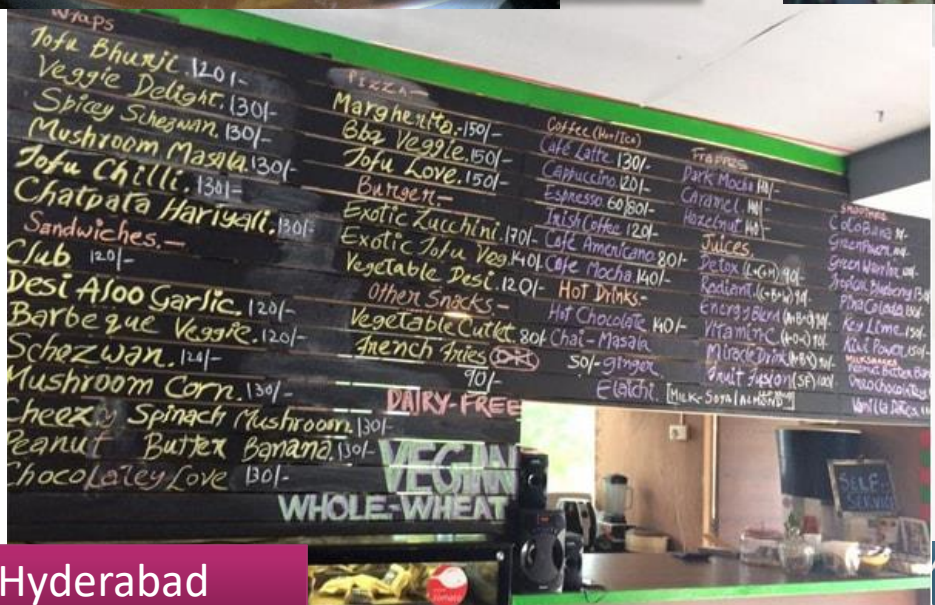 Wraps
Tofu Bhurji. 120/-
Veggie Delight. 130/-
Spicey Schezwan. 130/-
Mushroom Masala. 130/-
Tofu Chilli. 130/-
Chatpata Hariyali. 130/-
Sandwiches.-
Club 120/-
Desi Aloo Garlic. 120/-
Barbeque Veggie. 120/-
Schezwan. 120/-
Mushroom Corn. 130/-
Cheezy Spinach Mushroom. 130/-
Peanut Butter Banana. 130/-
Chocolatey Love 130/-
PIZZA-
Margherita.-150/-
Bbq Veggie. 150/-
Tofu Love. 150/-
Burger-
Exotic Zucchini. 170/-
Exotic Tofu Veg. 140/-
Vegetable Desi. 120/-
Other Snacks.-
Vegetable Cutlet 80/-
French Fries
90/-
DAIRY-FREE
VEGAN
WHOLE-WHEAT
Coffee (Hot/Ice)
Café Latte. 130/-
Cappuccino. 120/-
Espresso. 60/80/-
Irish Coffee 120/-
Café Americano. 80/-
Cafe Mocha. 140/-
Hot Drinks:-
Hot Chocolate 140/-
Chai-Masala
50/- ginger
Elaichi. [MILK-SOYA/ALMOND]
Frappes
Dark Mocha
Caramel
Hazelnut
Juices
Detox (L+G+H) 90/-
Radiant.
Energy Blend
Vitamin C
Miracle Drink
Fruit Fusion (SF) 100/-
CocoBana
Green Power
Green Warrior
Tropical Blueberry
Pina Colada
Key Lime
Kiwi Power
MILKSHAKES
Peanut Butter
Choco
Vanilla
SELF-
SERVICE
Hyderabad
zomato